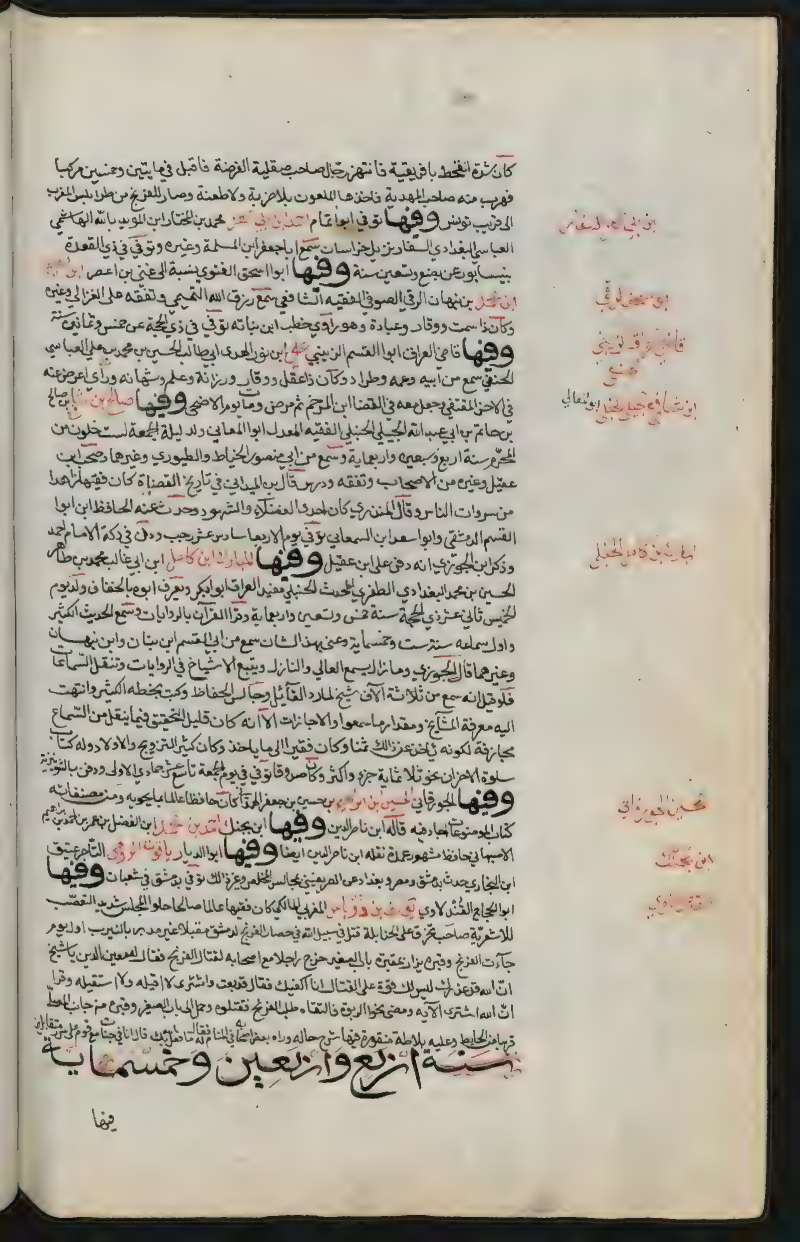 كان شدة القحط بافريقية فانتهز رجال صاحب صقلية الفرصة فاقبل في مايتين وخمسين مركبا
فهرب منه صاحب المهدية فاخذها الملعون بلا ضربة ولا طعنة وصار للفرنج من طرابلس المغرب
الى قريب تونس وفيها توفي ابو تمام احمد ابن ابي العز محمد بن المختار ابن المويد بالله الهاشمي
العباسي البغدادي السفار نزيل خراسان سمع ابا جعفر ابن المسلمة وغيره وتوفي في ذي القعدة
بنيسابور عن بضع وتسعين سنة وفيها ابو اسحق الغنوي نسبة الى غني بن اعصر ابراهيم
ابن محمد بن نبهان الرقي الصوفي الفقيه الشافعي سمع رزق الله التميمي وتفقه على الغزالي وغيره
وكان ذا سمت ووقار وعبادة وهو راوي خطب ابن نباته توفي في ذي الحجة عن خمس وثمانين سنة
وفيها قاضي العراق ابو القسم الزينبي علي ابن نور الهدى ابي طالب الحسين بن محمد بن علي العباسي
الحنفي سمع من ابيه وعمه وطراد وكان ذا عقل ووقار ورزانة وعلم وشهامة وراي اعرض عنه
في الاخر المقتفي وجعل معه في القضا ابن المرخم ثم مرض ومات يوم الاضحى وفيها صالح بن شافع ابن صالح
بن حاتم بن ابي عبد الله الجيلي الحنبلي الفقيه المعدل ابو المعالي ولد ليلة الجمعة لست خلون من
المحرم سنة اربع وسبعين واربعماية وسمع من ابي منصور الخياط والطيوري وغيرهما وصحب ابن
عقيل وغيره من الاصحاب وتفقه ودرس قال بن الميداني في تاريخ القضاة كان فقيها زاهدا
من سروات الناس وقال المنذري كان احد الفضلاء والشهود وحدث عنه الحافظ ابن ابو
القسم الدمشقي وابو سعد ابن السمعاني توفي يوم الاربعا سادس عشر رجب ودفن في دكة الامام احمد
وذكر ابن الجوزي انه دفن على ابن عقيل وفيها المبارك ابن كامل ابن ابي غالب محمد بن طاهر
الحسين بن محمد البغدادي الظفري المحدث الحنبلي مفيد العراق ابو بكر ويعرف ابوه بالخفاف ولد يوم
الخميس ثاني عشر ذي الحجة سنة خمس وتسعين واربعماية وقرا القرآن بالروايات وسمع الحديث الكثير
واول سماعه سنة ست وخمسماية وعني بهذا الشان سمع من ابي القسم ابن بيان وابن نبهان
وغيرهما قال الجوزي وما زال يسمع العالي والنازل ويتبع الاشياخ في الروايات وتنقل السماعات
فلو قيل انه سمع من ثلاثة الاف شيخ لما رد القائل وجالس الحفاظ وكتب بخطه الكثير وانتهت
اليه معرفة المشايخ ومقدار ما سمعوا والاجازات الا انه كان قليل التحقيق فيما ينقل من السماع
مجازفة لكونه ياخذ عن ذلك ثمنا وكان فقيرا الى ما ياخذ وكان كثير التزويج والاولاد وله كتاب
سلوة الاحزان نحو ثلاثماية جزء واكثر توفي في يوم الجمعة تاسع عشر جمادى الاولى ودفن بالشونيزية
وفيها الجورقاني الحسين بن ابراهيم بن حسين بن جعفر الهمداني كان حافظا عالما بما يحويه ومن مصنفاته
كتاب الموضوعات اجاد فيه قاله ابن ناصر الدين وفيها ابن بجنك احمد بن محمد ابن الفضل بن عمر بن احمد بن ابراهيم
الاصبهاني حافظ مشهور عمدة نقله ابن ناصر الدين ايضا وفيها ابو الدر ياقوت الرومي التاجر عتيق
ابن البخاري حدث بدمشق ومصر وبغداد عن الصريفيني بمجالس المخلص وغير ذلك توفي بدمشق في شعبان وفيها
ابو الحجاج الفندلاوي يوسف بن دوناس المغربي المالكي كان فقيها عالما صالحا حلو المجلس شديد التعصب
للاشعرية صاحب تحرق على الحنابلة قتل في سبيل الله في حصار الفرنج لدمشق مقبلا غير مدبر بالنيرب اول يوم
جاءت الفرنج وقبره يزار بمقبرة باب الصغير خرج راجلا مع اصحابه لقتال الفرنج فقال له معين الدين يا شيخ
ان الله قد عذرك ليس لك قوة على القتال انا اكفيك فقال قد بعت واشترى لا اقيله ولا استقيله وقرا
ان الله اشترى الآية ومضى نحو الربوة فالتقاه طلب الفرنج فقتلوه وحمل الى باب الصغير وقبره من جانب المصلى
قريبا من الحايط وعليه بلاطة منقورة فيها شرح حاله وراه بعض اصحابه في المنام فقال له ما فعل الله بك قال انا في جنات مع قوم على سرر متقابلين
سنة اربع واربعين وخمسماية
فيها
ابن ابي العز السفار
ابو اسحق الرقي
قاضي العراق الزينبي
الحنفي
ابن شافع الجيلي الحنبلي ابو المعالي
المبارك بن كامل الحنبلي
الحسين الجورقاني
ابن بجنك
الفندلاوي